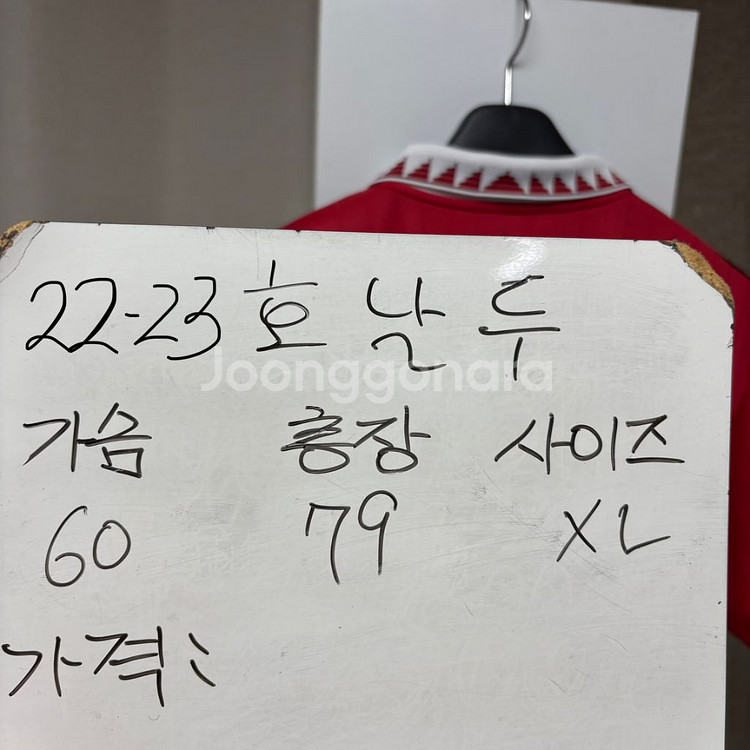 22-23 호날두
Joonggonara
가슴 총장 사이즈
60 79 XL
가격: